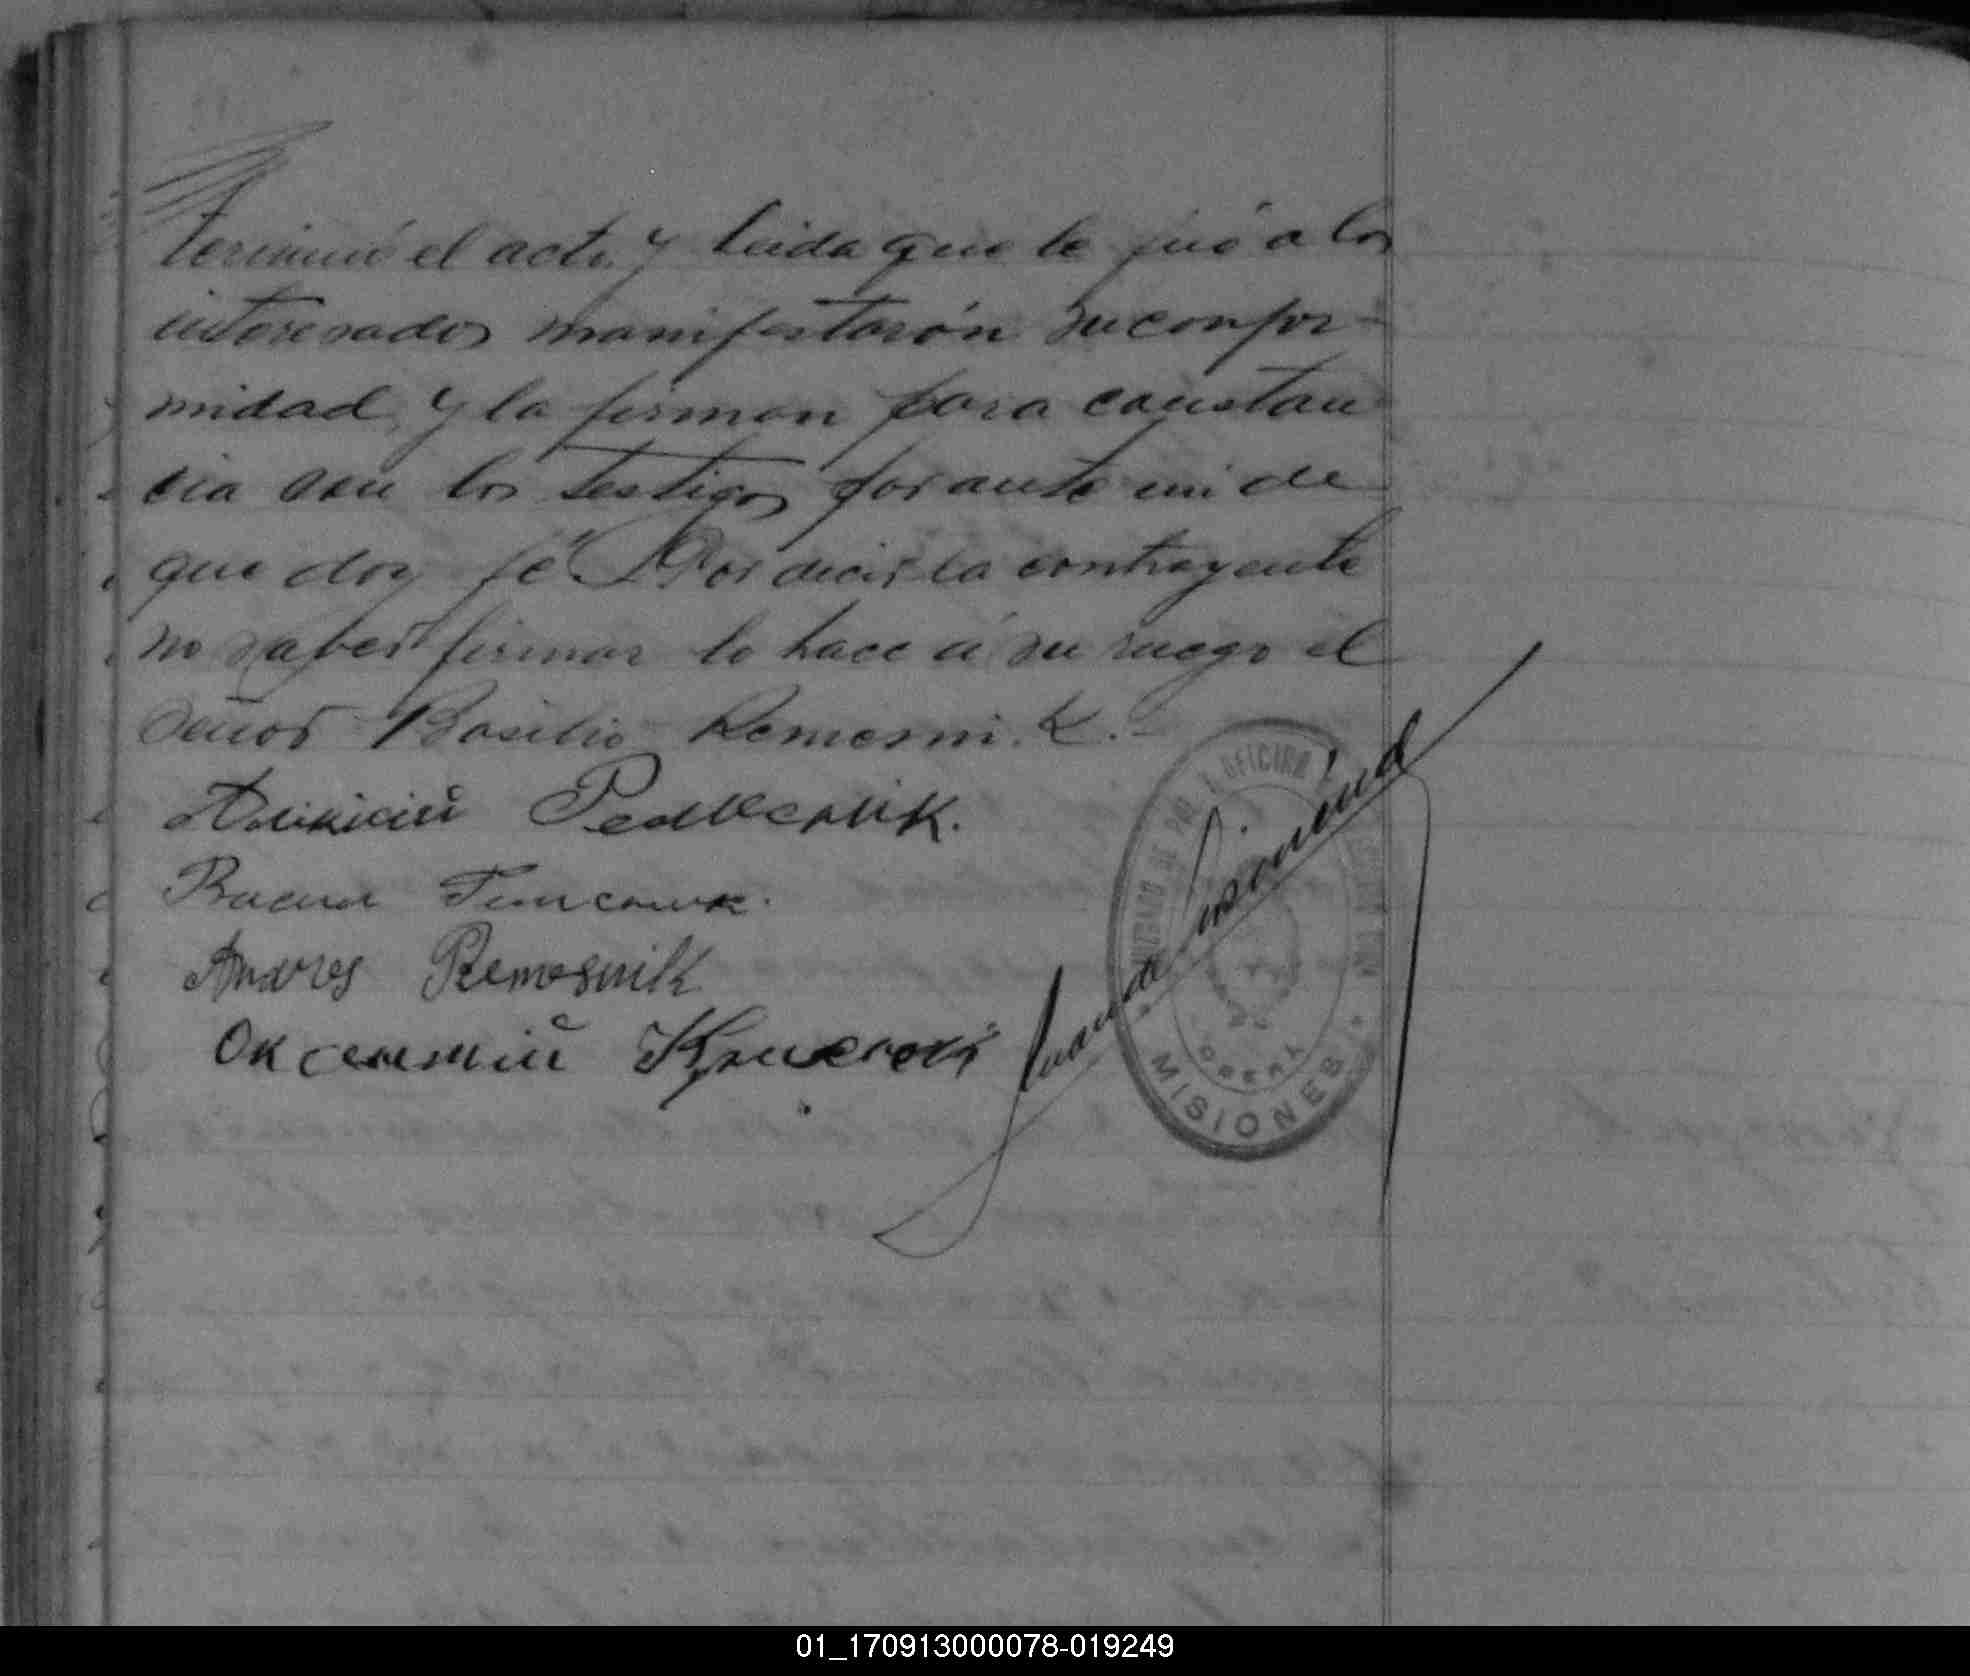 terminó el acto, y leida que le fué a los
interesados manifestarón su confor-
midad, y la firman para constan
cia con los testigos por ante mi de
que doy fé. Por decir la contrayente
no saber firmar lo hace á su ruego el
Señor Basilio Remesni.K.-
Андрес
Andres Remesnik
JUZGADO DE PAZ Y OFICINA
OBERA
MISIONES
01_170913000078-019249